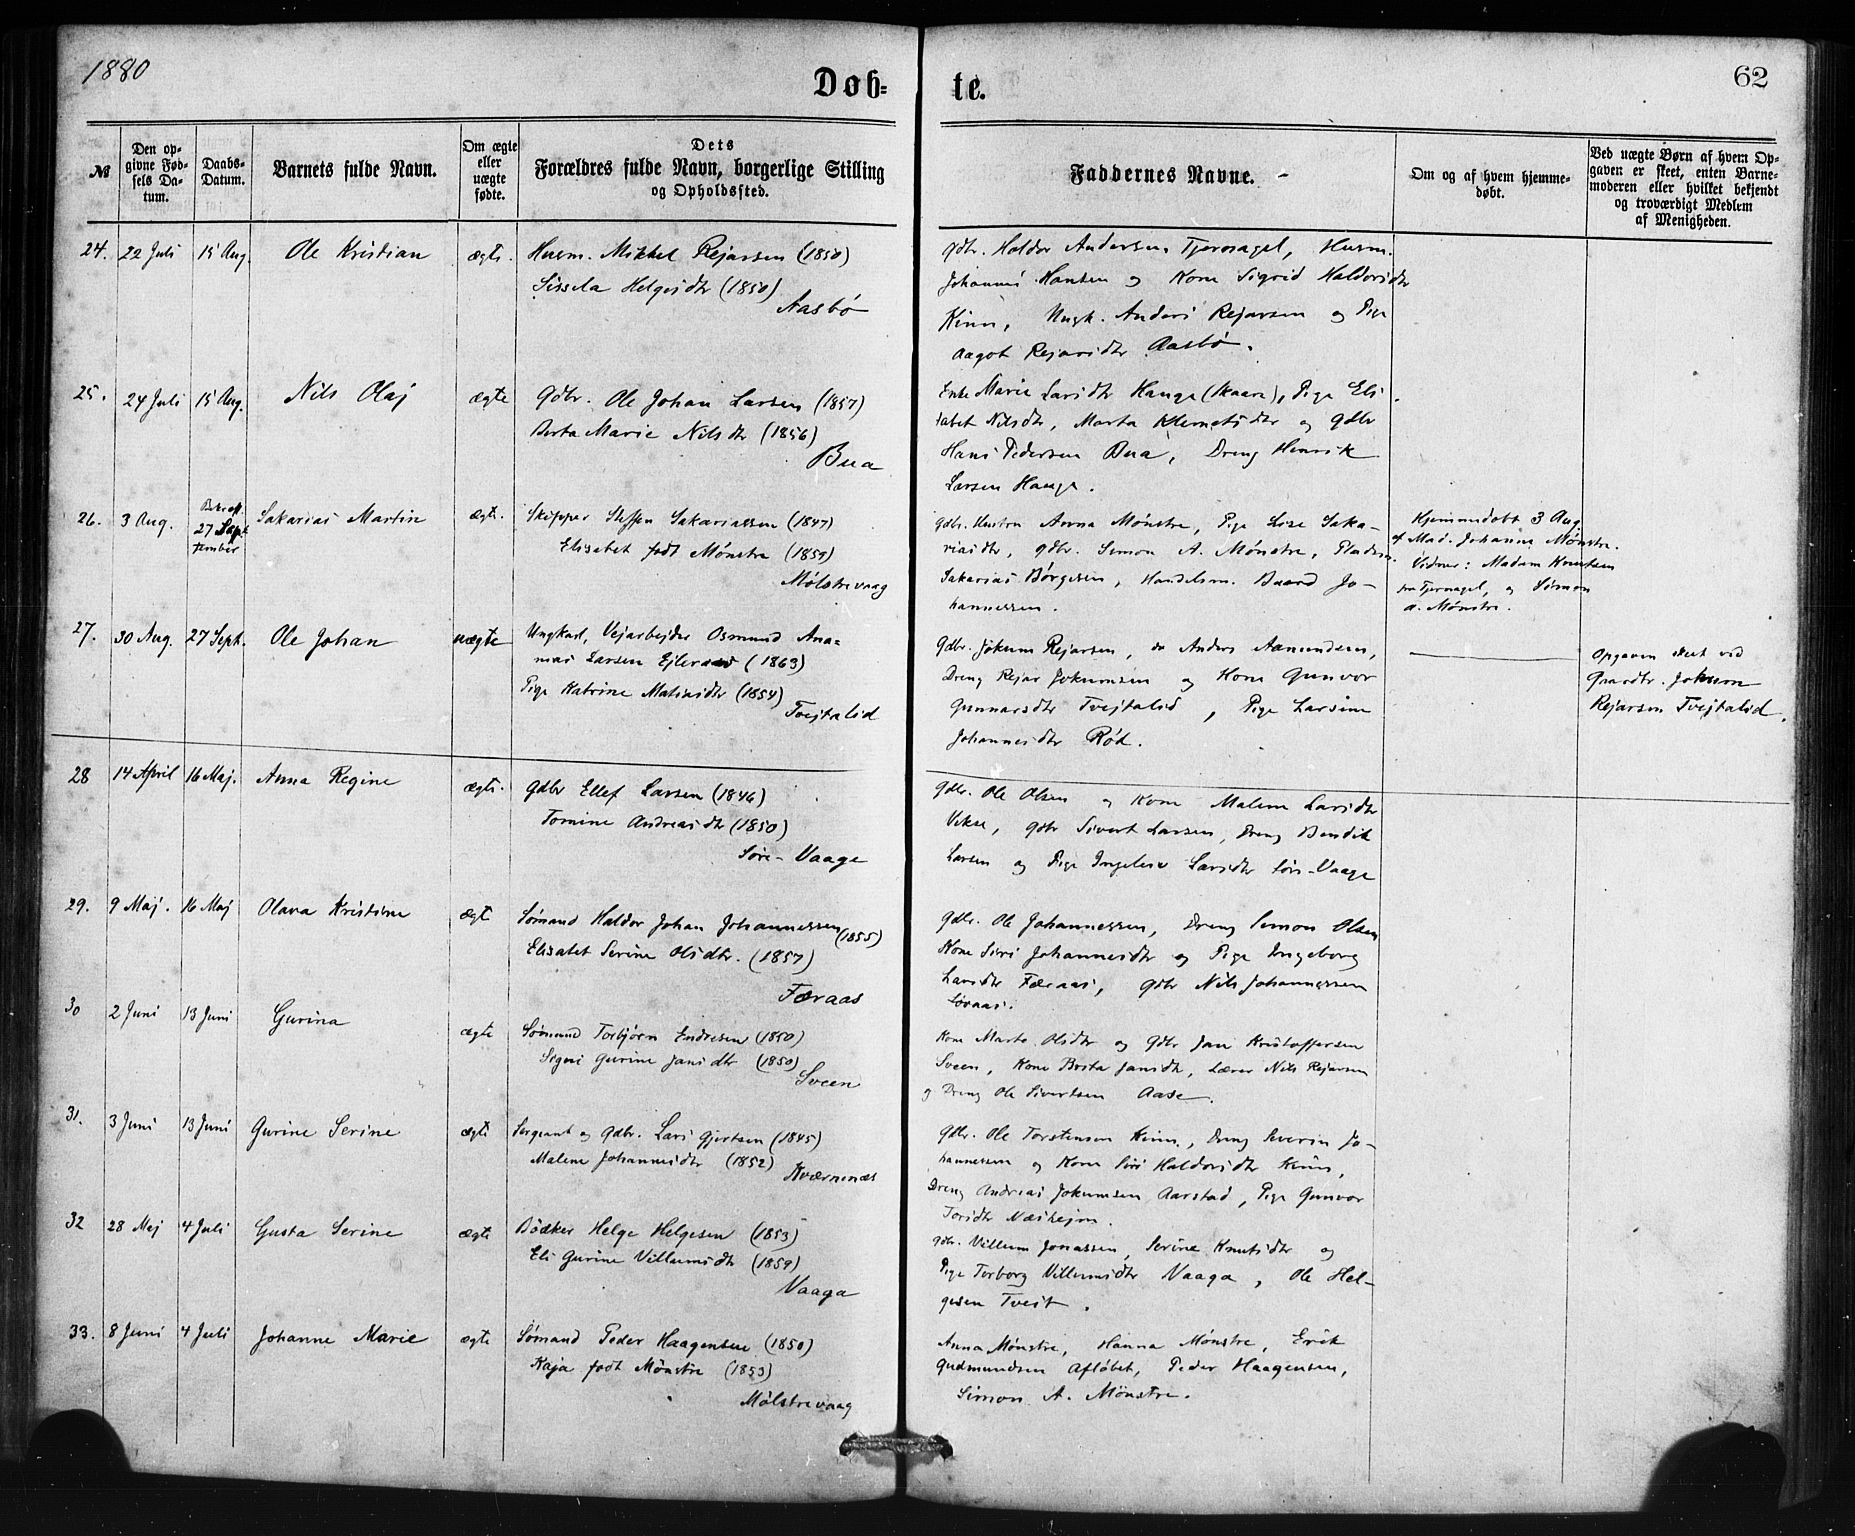 1880
Døb-
te.
62
№
Den op-
givne Fød-
sels Da-
tum.
Daabs-
Datum.
Barnets fulde Navn.
Om ægte
eller
uægte
fødte.
Dets
Forældres fulde Navn, borgerlige Stilling
og Opholdssted.
Faddernes Navne.
Om og af hvem hjemme-
døbt.
Ved uægte Børn af hvem Op-
gaven er skeet, enten Barne-
moderen eller hvilket bekjendt
og troværdigt Medlem
af Menigheden.
24. 22 Juli 15 Aug. Ole Kristian ægte. Husm. Mikkel Rejarsen (1850)
Sissela Helgesdtr (1850)
Aasbø
Gdbr. Haldor Andersen Tjernagel, Husm.
Johannes Hansen og Kone Sigrid Haldorsdtr
Kinn, Ungk. Anders Rejarsen og Pige
Aagot Rejarsdtr Aasbø.
25. 24 Juli 15 Aug. Nils Olaj ægte Gdbr. Ole Johan Larsen (1857)
Berta Marie Nilsdtr (1856)
Bua
Enke Marie Larsdtr Hauge (Skaare), Pige Eli-
sabet Nilsdtr, Marta Klemetsdtr og Gdbr
Hans Pedersen Bua, Dreng Henrik
Larsen Hauge.
26. 3 Aug. Bekræft. 27 September Sakarias Martin ægte. Skipper Steffen Sakariassen (1847)
Elisabet født Mønstre (1859)
Mølstrevaag
Gdbr. Hustru Anna Mønstre, Pige Lise Saka-
riasdtr, Gdbr. Simon A. Mønstre,
Sakarias Børgesen, Handelsm. Baard Jo-
hannessen.
Hjemmedøbt 3 Aug
af Mad. Johanna Mønstre.
Vidner: Madam Knutsen
fra Tjernagel, og Simon
A. Mønstre.
27. 30 Aug. 27 Sept. Ole Johan uægte Ungkarl, Vejarbejder Osmund Ana-
nias Larsen Ejleraas (1863)
Pige Katrine Matiasdtr (1854)
Tvejtalid
Gdbr. Jokum Rejarsen, do Anders Aamundsen,
Dreng Rejar Jokumsen og Kone Gunvor
Gunnarsdtr Tvejtalid, Pige Larsine
Johannesdtr Rød.
Opgaven skeet ved
Gaardbr. Jokum
Rejarsen Tvejtalid.
28 14 April 16 Maj. Anna Regine ægte. Gdbr Ellef Larsen (1846)
Tomine Andreasdtr (1850)
Søre-Vaage
Gdbr. Ole Olsen og Kone Malene Larsdtr
Vikse, Gdbr Sivert Larsen, Dreng Bendik
Larsen og Pige Ingeline Larsdtr Søre-Vaage
29. 9 Maj. 16 Maj Olava Kristine ægte Sømand Haldor Johan Johannessen (1855)
Elisabet Serine Olsdtr. (1857)
Færaas
Gdbr. Ole Johannessen, Dreng Simon Olsen
Kone Siri Johannesdtr og Pige Ingeborg
Larsdtr Færaas, Gdbr Nils Johannessen
Løvaas.
30 2 Juni 13 Juni Gurina ægte Sømand Torbjørn Endresen (1850)
Signi Gurine Jansdtr (1850)
Sveen
Kone Marta Olsdtr og Gdbr Jan Kristoffersen
Sveen, Kone Berta Jansdtr, Lærer Nils Rejarsen
og Dreng Ole Sivertsen Aase.
31. 3 Juni 13 Juni Gurine Serine ægte Sergeant og Gdbr. Lars Gjertsen (1845)
Malene Johannesdtr (1852)
Kværnenæs
Gdbr. Ole Torstensen Kinn, Dreng Severin Jo-
hannessen og Kone Siri Haldorsdtr Kinn,
Dreng Andreas Jokumsen Aarstad, Pige Gunvor
Torsdtr Næshejm.
32 28 Maj 4 Juli Gusta Serine ægte Bødker Helge Helgesen (1853)
Eli Gurine Villumsdtr (1859)
Vaaga
Gdbr. Villum Jonassen, Serine Knutsdtr og
Pige Torborg Villumsdtr Vaaga, Ole Hel-
gesen Tveit.
33. 8 Juni 4 Juli Johanne Marie ægte Sømand Peder Haagensen (1850)
Kaja født Mønstre (1853)
Mølstrevaag
Anna Mønstre, Hanna Mønstre, Erik
Gudmundsen Afløbet, Peder Haagensen,
Simon A. Mønstre.